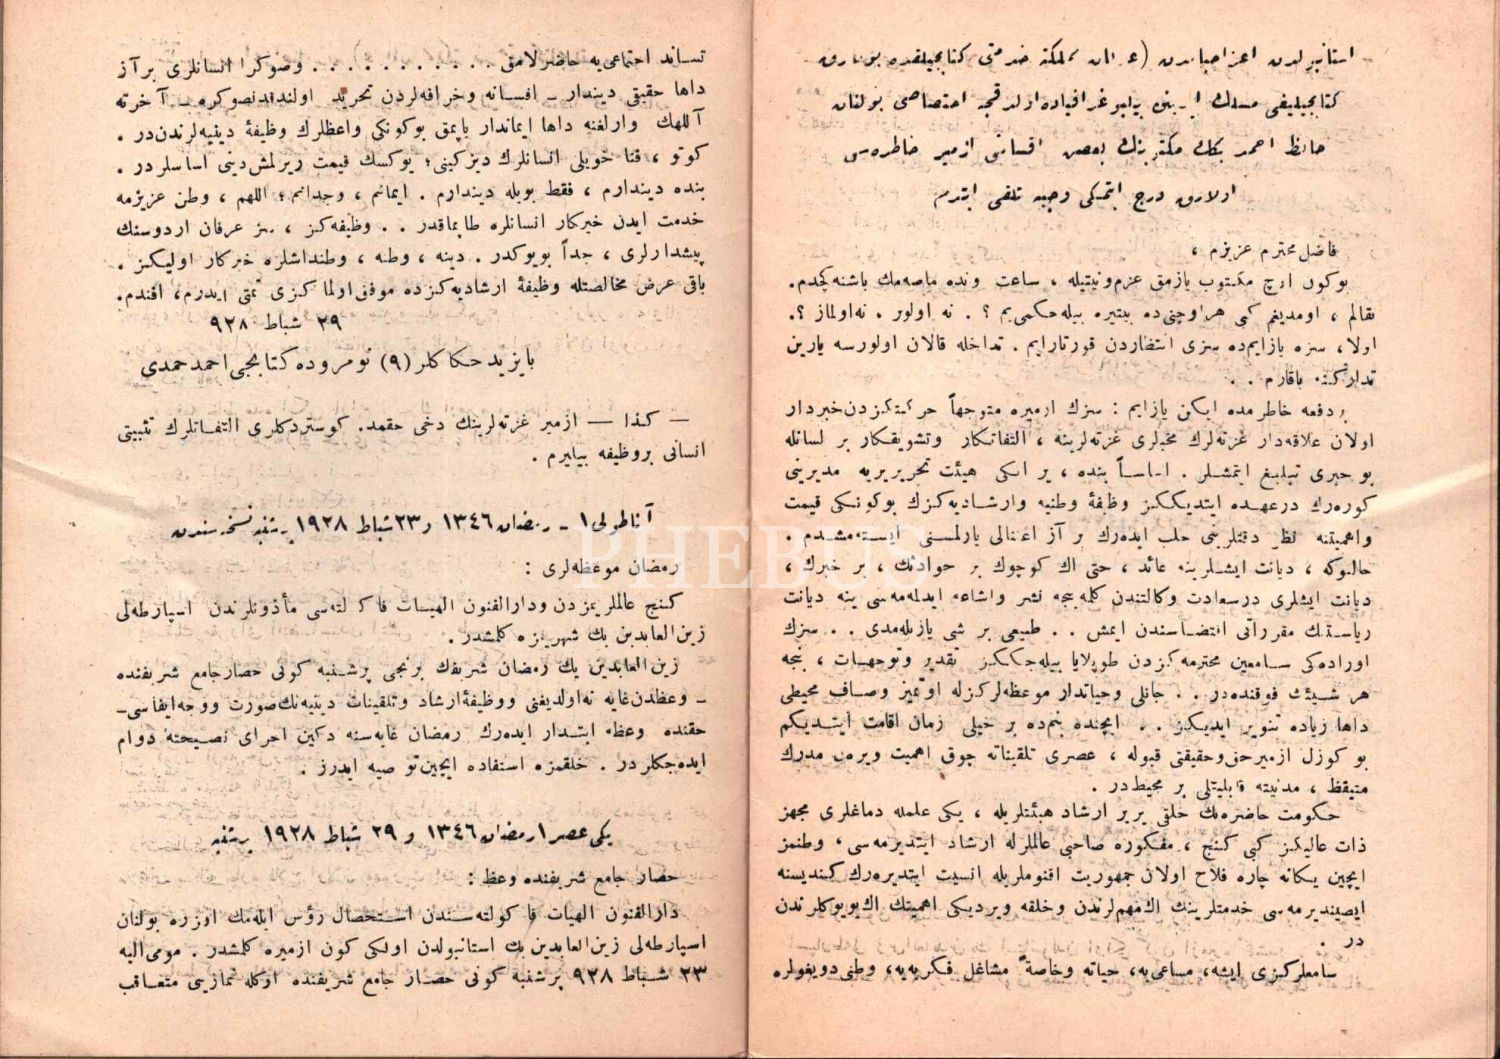 استانبولدن اعز احبابدن (عرفان مملکته خدمتی کتابجیلقده بولارق
کتابجیلیغی مسلك ایدینن بیبلیوغرافیاده اولدقجه اختصاصی بولنان
حافظ احمد بكك مکتوبنك بعض اقسامنی ازمیر خاطره‌سی
اولارق درج ایتمکی وجیبه تلقی ایتدم
فاضل محترم عزیزم ،
بوکون اوچ مکتوب یازمق عزم‌ونیتیله ، ساعت ونده ماصه‌مك باشنه‌کچدم.
بقالم ، اومدیغم کبی هراوچنی‌ده بیتیره بیله‌جکمی‌یم ؟ . نه اولور . نه‌اولماز ؟.
اولا، سزه یازایم‌ده سزی انتظاردن قورتارایم . تداخله قالان اولورسه یارین
تدارکنه باقارم . .
بردفعه خاطرمده ایکن یازایم : سزك ازمیره متوجهاً حرکتکزدن‌خبردار
اولان علاقه‌دار غزته‌لرك مخبرلری غزته‌لرینه ، التفاتکار وتشویقکار بر لسانله
بو خبری تبلیغ ایتمشلر . اساساً بنده ، بر ایکی هیئت تحریریه مدیرینی
کوره‌رك درعهده ایتدیککز وظیفهٔ وطنیه وارشادیه‌کزك بوکونکی قیمت
واهمیتنه نظر دقتلرینی جلب ایده‌رك بر آز اعتنالی یازلمسنی ایسته‌مشدم .
حالبوکه ، دیانت ایشلرینه عائد ، حتی اك کوچوك بر حوادثك ، بر خبرك ،
دیانت ایشلری درسعادت وکالتندن کلمه‌ینجه نشر واشاعه ایدلمه‌مسی ینه دیانت
ریاستنك مقرراتی اقتضاسندن ایمش . . طبیعی بر شی یازیله‌مدی . . سزك
اوراده‌کی سامعین محترمه‌کزدن طوپلایا بیله‌جککز تقدیر وتوجهات ، بنجه
هر شیئك فوقنده‌در . . جانلی وحیاتدار موعظه‌لرکزله اوتمیز وصاف محیطی
داها زیاده تنویر ایدیکز . . ایچنده بنم‌ده بر خیلی زمان اقامت ایتدیکم
بو کوزل ازمیرحق‌وحقیقتی قبوله ، عصری تلقیناته چوق اهمیت ویره‌ن مدرك
متیقظ ، مدنیته قابلیتلی بر محیط‌در .
حکومت حاضره‌نك خلقی یریر ارشاد هیئتلریله ، یکی علمله دماغلری مجهز
ذات عالیکز کبی کنج ، مفکوره صاحبی عالملرله ارشاد ایتدیرمه‌سی، وطنمز
ایچین یکانه چاره فلاح اولان جمهوریت اقنوملریله انسیت ایتدیره‌رك کندیسنه
ایصیندیرمه‌سی خدمتلرینك اك‌مهملرندن وخلقه ویردیکی اهمیتك اك‌بویوکلرندن
در .
سامعلرکزی ایشه، مساعی‌یه، حیاته وخاصةً مشاغل فکریه‌یه، وطنی‌دویغولره
تساند اجتماعی‌یه حاضرلامق . . . . . . . . . . . وصوکرا انسانلری برآز
داها حقیقی دیندار ــ افسانه وخرافه‌لردن تجرید اولندیدنصوکره ــ آخرته
آللهك وارلغنه داها ایماندار یاپمق بوکونکی واعظلرك وظیفهٔ دینیه‌لرندن‌در .
کوتو ، فنا خویلی انسانلرك دیزکینی؛ یوکسك قیمت ویرلمش‌دینی اساسلردر .
بنده دیندارم ، فقط بویله دیندارم . ایمانم ، وجدانم؛ اللهم ، وطن عزیزمه
خدمت ایدن خیرکار انسانلره طاپماقدر . . وظیفه‌کز ، سز عرفان اردوسنك
پیشدارلری ، جداً بویوکدر . دینه ، وطنه ، وطنداشلره خیرکار اولیکز .
باقی عرض مخالصتله وظیفهٔ ارشادیه‌کزده موفق‌اولما کزی تمنی ایدرم، افندم.
٢٩ شباط ٩٢٨
بایزید حکاکلر (٩) نومروده کتابجی احمد حمدی
— کذا — ازمیر غزته‌لرینك دخی حقمده. کوستردکلری التفاتلرك تثبیتی
انسانی بروظیفه بیلیرم .
آناطولی ١ ــ رمضان ١٣٤٦ و ٢٣ شباط ١٩٢٨ پرشنبه نسخه‌سندن
رمضان موعظه‌لری :
کنج عالملریمزدن ودارالفنون الهیات فاکولته‌سی مأذونلرندن اسپارطه‌لی
زین‌العابدین بك شهریمزه کلمشدر .
زین‌العابدین بك رمضان شریفك برنجی پرشنبه کونی حصارجامع شریفنده
ــ وعظدن‌غایه نه‌اولدیغنی ووظیفهٔ‌ارشاد وتلقینات دینیه‌نك‌صورت ووجه‌ایفاسی ــ
حقنده وعظه ابتدار ایده‌رك رمضان غایه‌سنه دکین اجرای نصیحته دوام
ایده‌جکلردر . خلقمزه استفاده ایچین‌توصیه ایدرز .
یکی عصر ١ رمضان ١٣٤٦ و ٢٩ شباط ١٩٢٨ پرشنبه
حصار جامع شریفنده وعظ :
دارالفنون الهیات فاکولته‌سندن استحصال رؤس ایله‌مك اوزره بولنان
اسپارطه‌لی زین‌العابدین بك استانبولدن اولکی کون ازمیره کلمشدر . مومی‌الیه
٢٣ شباط ٩٢٨ پرشنبه کونی حصار جامع شریفنده اوکله نمازینی متعاقب
PHEBUS